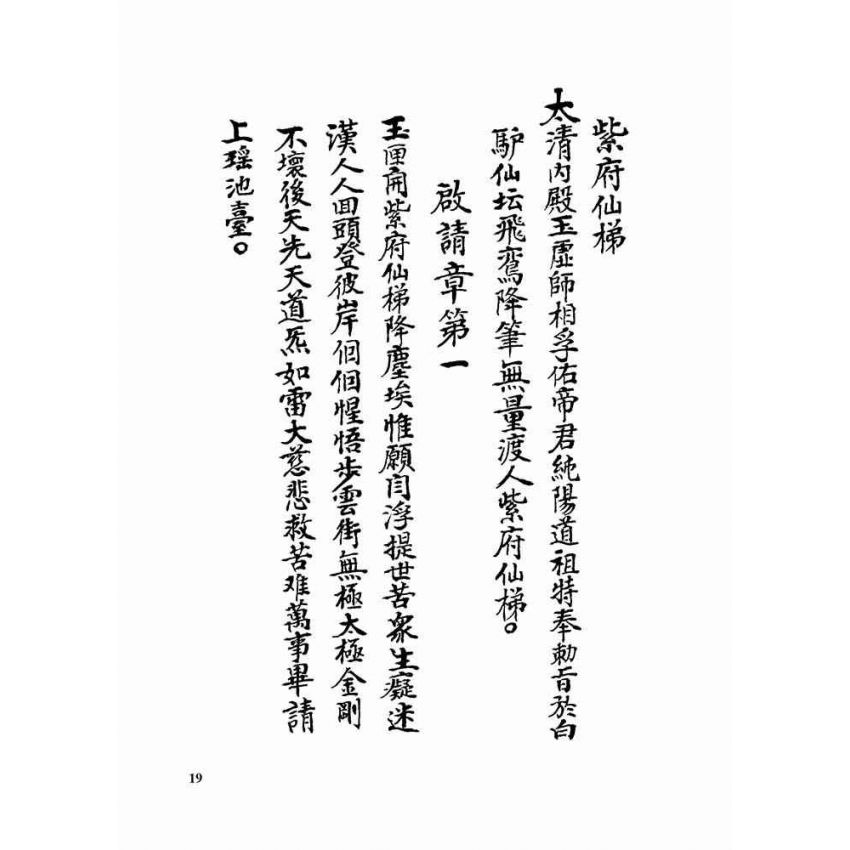 紫府仙梯
太清内殿玉虛師相孚佑帝君純陽道祖特奉勅旨於白
馿仙坛飛鸾降筆無量渡人紫府仙梯。
啟請章第一
玉匣開紫府仙梯降塵埃惟願閆浮提世苦眾生癡迷
漢人人回頭登彼岸個個惺悟步雲街無極太極金剛
不壞後天先天道炁如雷大慈悲救苦难萬事畢請
上瑶池臺。
19